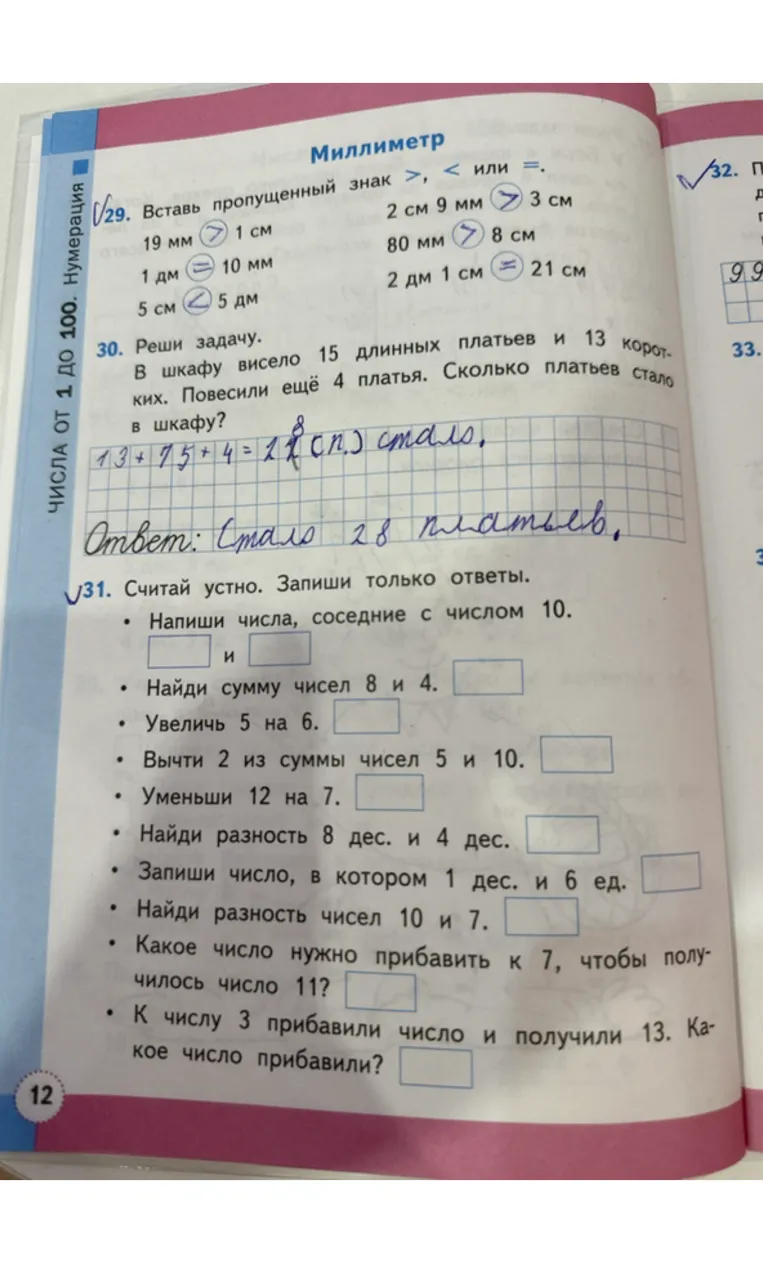 Миллиметр
29. Вставь пропущенный знак >, < или =.
19 мм > 1 см
2 см 9 мм > 3 см
1 дм = 10 мм
80 мм > 8 см
5 см < 5 дм
2 дм 1 см = 21 см
30. Реши задачу.
В шкафу висело 15 длинных платьев и 13 корот-
ких. Повесили ещё 4 платья. Сколько платьев стало
в шкафу?
13 + 15 + 4 = 28 (п.) стало.
Ответ: Стало 28 платьев.
31. Считай устно. Запиши только ответы.
• Напиши числа, соседние с числом 10.
и
• Найди сумму чисел 8 и 4.
• Увеличь 5 на 6.
• Вычти 2 из суммы чисел 5 и 10.
• Уменьши 12 на 7.
• Найди разность 8 дес. и 4 дес.
• Запиши число, в котором 1 дес. и 6 ед.
• Найди разность чисел 10 и 7.
• Какое число нужно прибавить к 7, чтобы полу-
чилось число 11?
• К числу 3 прибавили число и получили 13. Ка-
кое число прибавили?
12
ЧИСЛА ОТ 1 ДО 100. Нумерация
32. П
9 9
33.